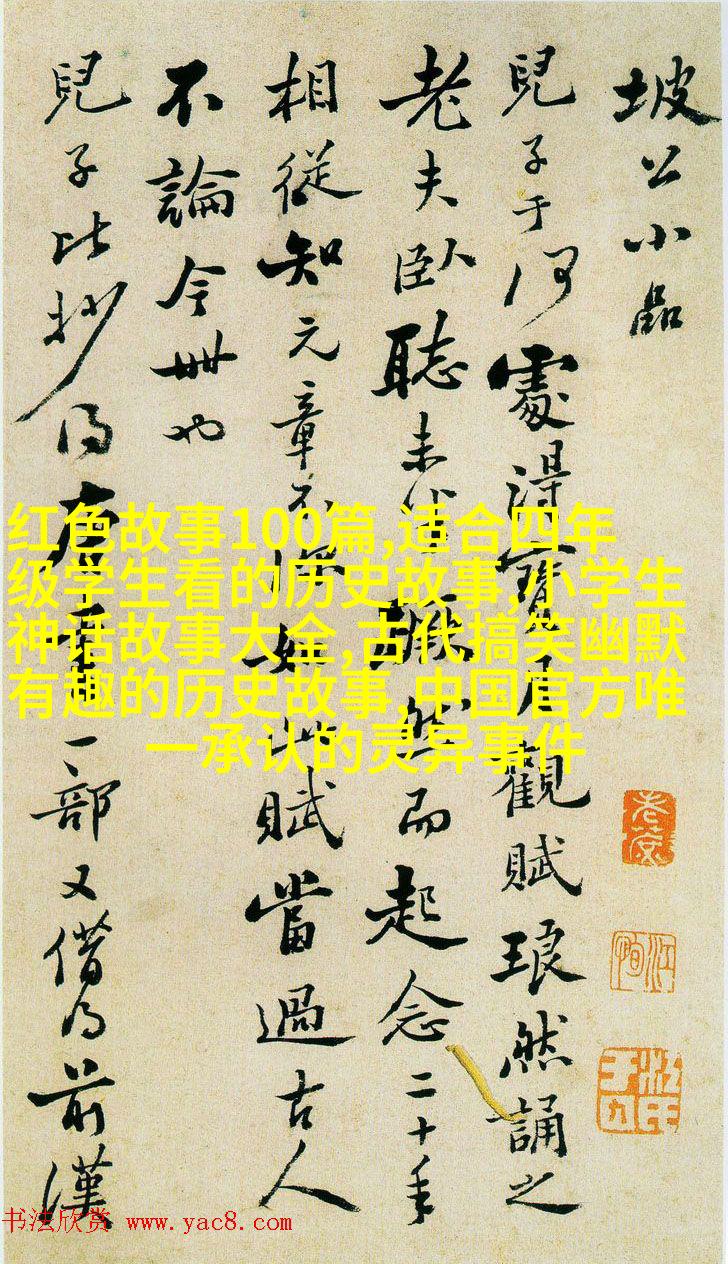 坡公小品
兒子于何處得寶月觀賦琅然誦之
老夫臥聽未半蹶然而起念二十年
相從知元章不如此賦當過古人
不論今世也
兒子比抄得唐書一部又借得前漢
红色故事100篇,适合四年
级学生看的历史故事,小学生
神话故事大全,古代搞笑幽默
有趣的历史故事,中国官方唯
一承认的灵异事件
书法欣赏 www.yac8.com